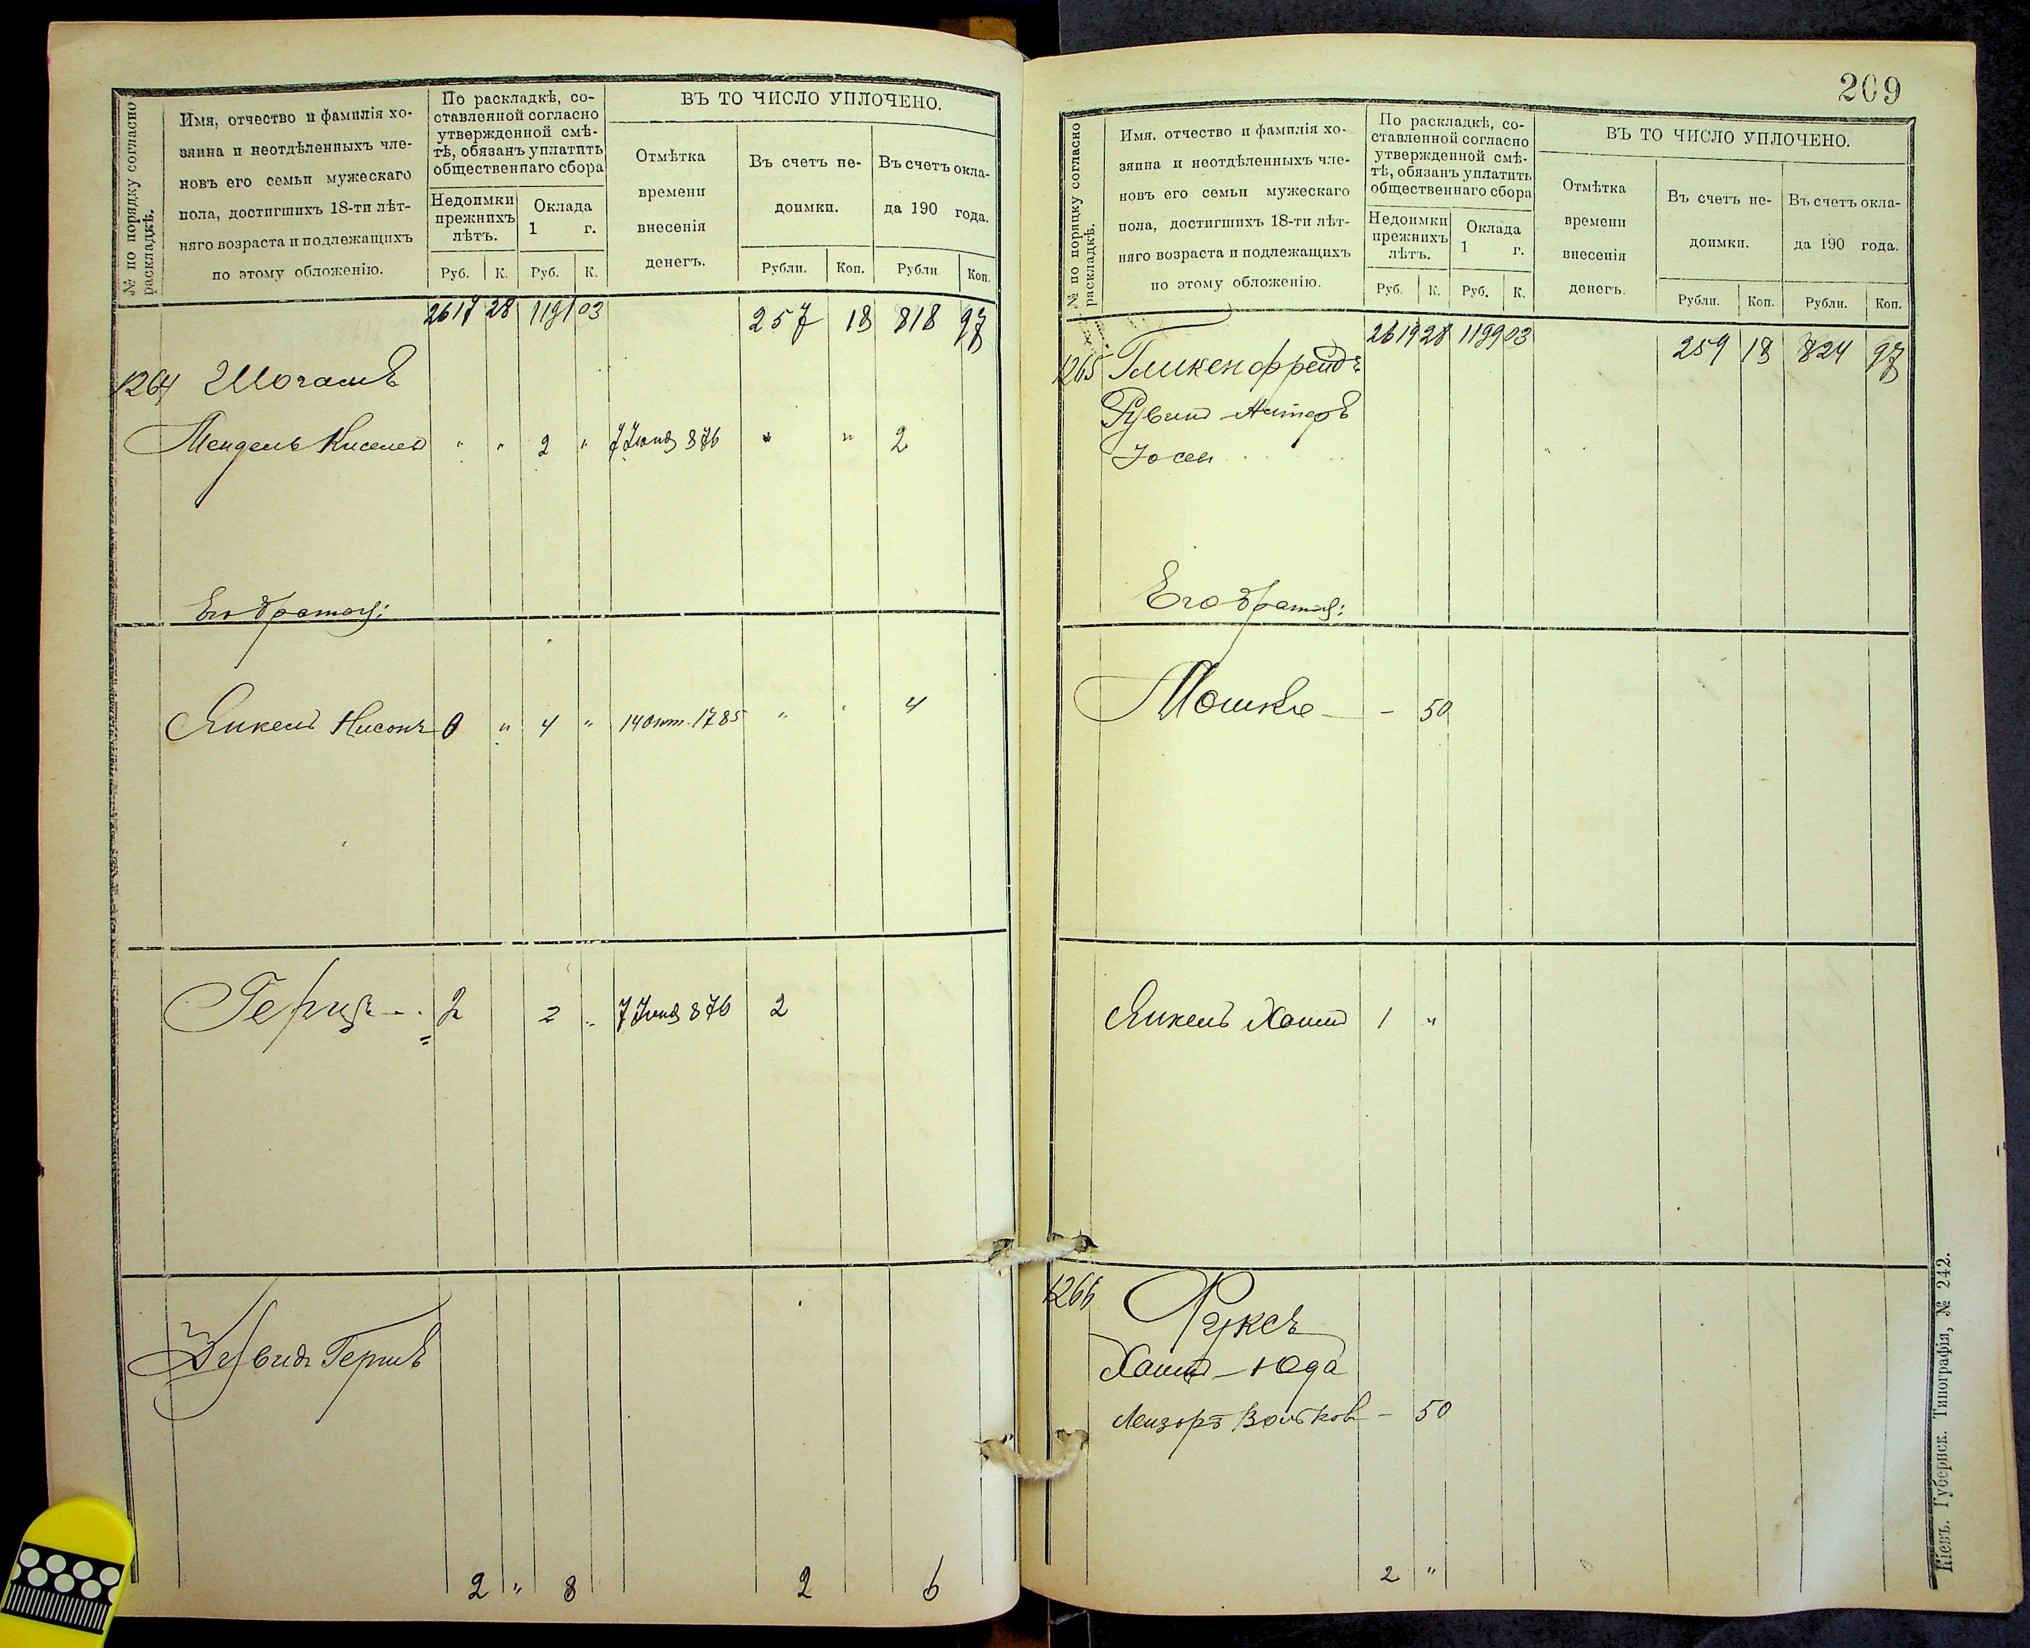 № по порядку согласно
раскладкѣ.
Имя, отчество и фамилія хо-
зяина и неотдѣленныхъ чле-
новъ его семьи мужескаго
пола, достигшихъ 18-ти лѣт-
няго возраста и подлежащихъ
по этому обложенію.
По раскладкѣ, со-
ставленной согласно
утвержденной смѣ-
тѣ, обязанъ уплатить
общественнаго сбора
Недоимки
прежнихъ
лѣтъ.
Оклада
1 г.
Руб. К. Руб. К.
ВЪ ТО ЧИСЛО УПЛОЧЕНО.
Отмѣтка
времени
внесенія
денегъ.
Въ счетъ не-
доимки.
Въ счетъ окла-
да 190 года.
Рубли. Коп. Рубли Коп.
2617 28 1191 03 257 18 818 97
1264
Мендель Киселев " " 2 " 7 Іюня 876 " " 2
Его братья:
Янкель Нисонъ 0 " 4 " 14 окт. 1785 " " 4
Герш 2 2 " 7 Іюня 876 2
Гершъ
2 " 8 2 6
209
№ по порядку согласно
раскладкѣ.
Имя, отчество и фамилія хо-
зяина и неотдѣленныхъ чле-
новъ его семьи мужескаго
пола, достигшихъ 18-ти лѣт-
няго возраста и подлежащихъ
по этому обложенію.
По раскладкѣ, со-
ставленной согласно
утвержденной смѣ-
тѣ, обязанъ уплатить
общественнаго сбора
Недоимки
прежнихъ
лѣтъ.
Оклада
1 г.
Руб. К. Руб. К.
ВЪ ТО ЧИСЛО УПЛОЧЕНО.
Отмѣтка
времени
внесенія
денегъ.
Въ счетъ не-
доимки.
Въ счетъ окла-
да 190 года.
Рубли. Коп. Рубли. Коп.
2619 28 1199 03 259 18 824 97
1265 Гликенфрейдъ
Рувин
Іосел
Его братья:
Мошко — – 50
Янкель Хаим 1 "
1266 Фуксъ
Хаим – Юда
Лейзоръ Волков – 50
2 "
Кіевъ. Губернск. Типографія, № 242.